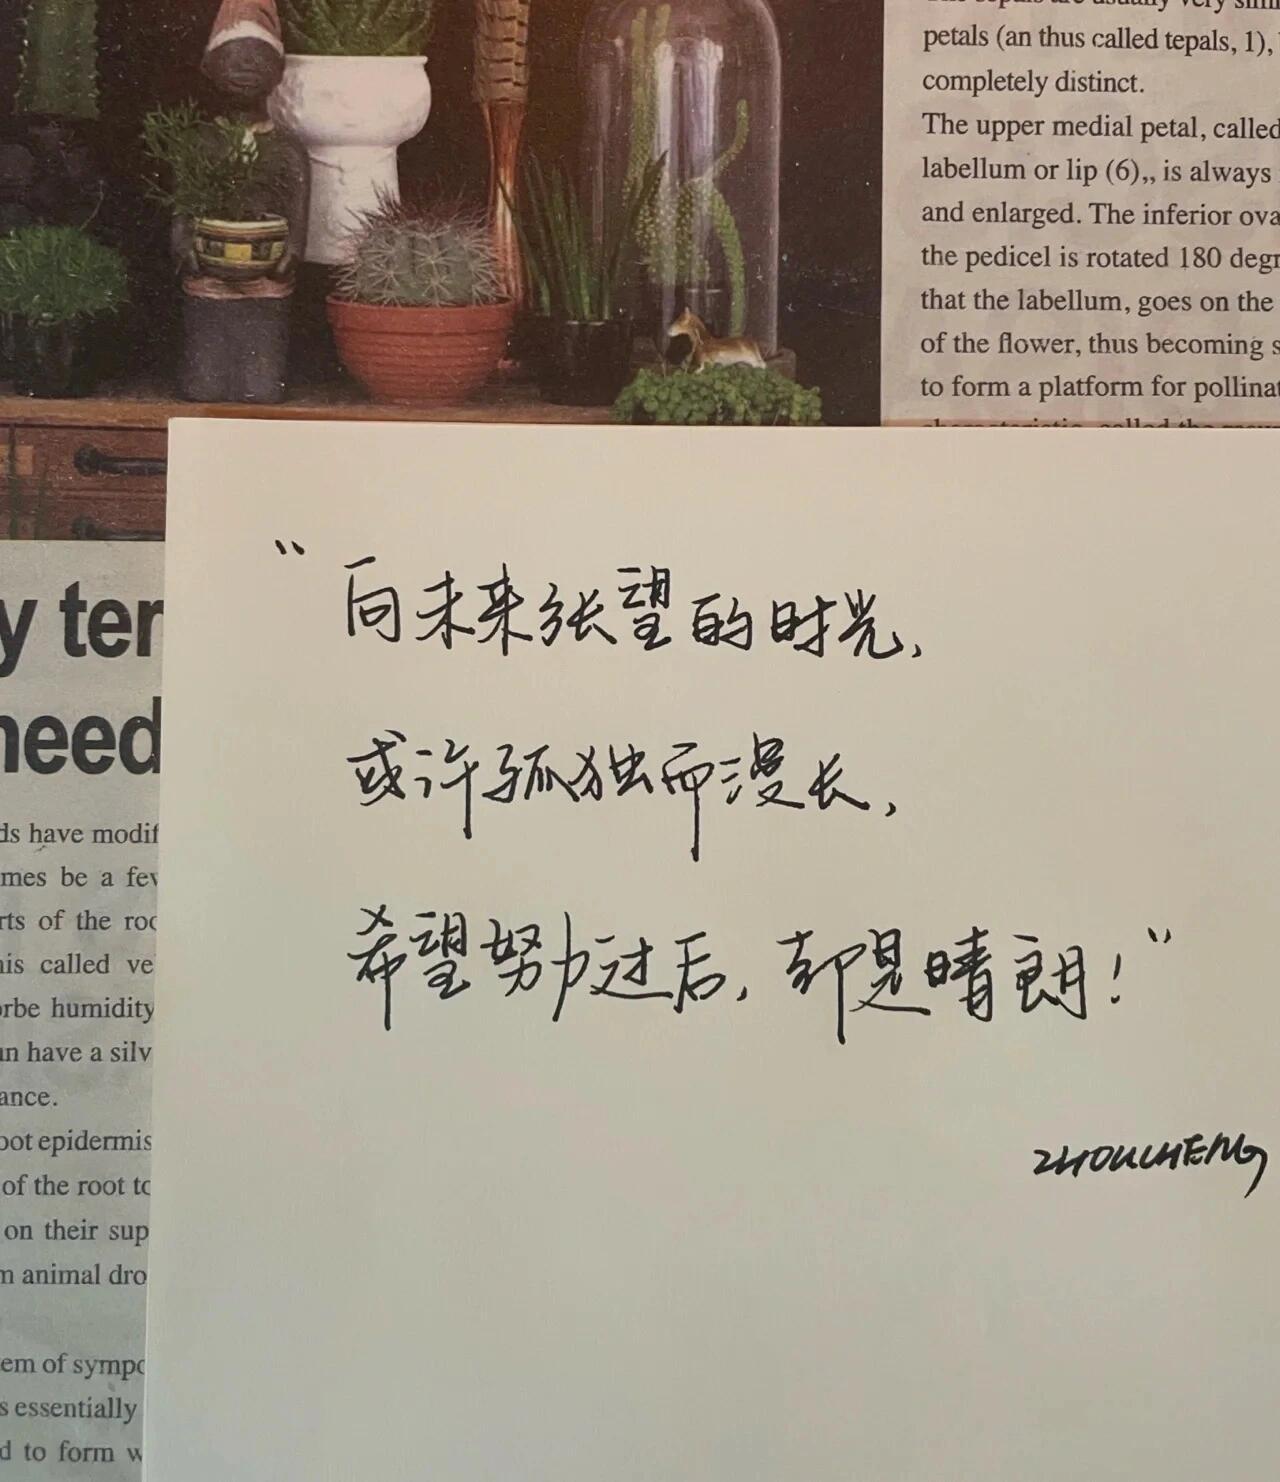 petals (an thus called tepals, 1),
completely distinct.
The upper medial petal, called
labellum or lip (6),, is always
and enlarged. The inferior ova
the pedicel is rotated 180 degr
that the labellum, goes on the
of the flower, thus becoming s
to form a platform for pollinat
“向未来张望的时光，
或许孤独而漫长，
希望努力过后，都是晴朗！”
ZHOUCHENG
y ter
need
ds have modif
mes be a few
rts of the roo
his called ve
orbe humidity
an have a silv
ance.
oot epidermis
of the root to
on their sup
m animal dro
em of sympo
s essentially
d to form w